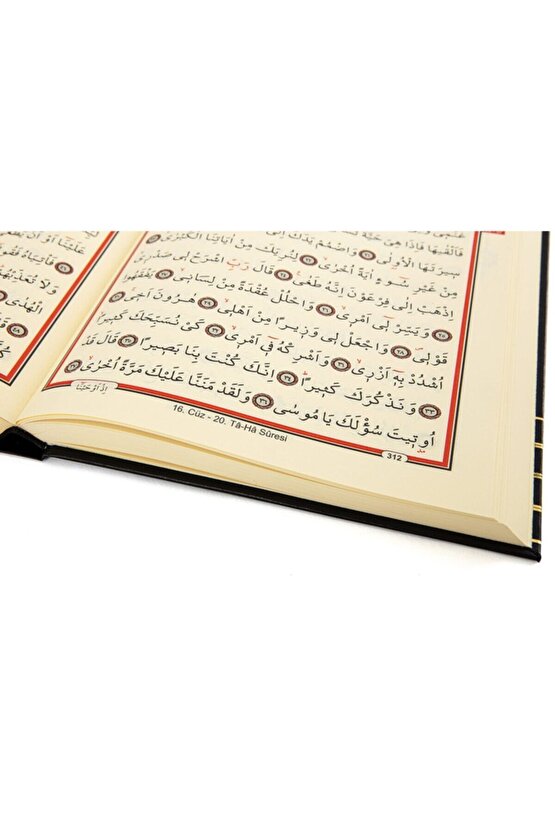 غَنَمٖى
فَاَلْقٰيهَا فَاِذَا هِيَ حَيَّةٌ
سٖيرَتَهَا الْاُو۫لٰى ٢١ وَاضْمُمْ يَدَكَ اِلٰى
مِنْ غَيْرِ سُٓوءٍ اٰيَةً اُخْرٰى ٢٢ لِنُرِيَكَ مِنْ اٰيَاتِنَا الْكُبْرٰى ٢٣
اِذْهَبْ اِلٰى فِرْعَوْنَ اِنَّهُ طَغٰى ٢٤ قَالَ رَبِّ اشْرَحْ لٖى صَدْرٖى
٢٥ وَيَسِّرْ لٖٓى اَمْرٖى ٢٦ وَاحْلُلْ عُقْدَةً مِنْ لِسَانٖى ٢٧ يَفْقَهُوا
قَوْلٖى ٢٨ وَاجْعَلْ لٖى وَزٖيرًا مِنْ اَهْلٖى ٢٩ هٰرُونَ اَخٖى ٣٠
اُشْدُدْ بِهٖٓ اَزْرٖى ٣١ وَاَشْرِكْهُ فٖٓى اَمْرٖى ٣٢ كَىْ نُسَبِّحَكَ كَثٖيرًا
٣٣ وَنَذْكُرَكَ كَثٖيرًا ٣٤ اِنَّكَ كُنْتَ بِنَا بَصٖيرًا ٣٥ قَالَ قَدْ
اُو۫تٖيتَ سُؤْلَكَ يَا مُوسٰى ٣٦ وَلَقَدْ مَنَنَّا عَلَيْكَ مَرَّةً اُخْرٰى ٣٧
اِذْ اَوْحَيْنَٓا
16. Cüz - 20. Tâ-Hâ Sûresi
312
عَلَيْنَٓا اَوْ اَنْ
فَاْتِيَاهُ
وَلَا تُعَذِّبْهُمْ
الْهُدٰى